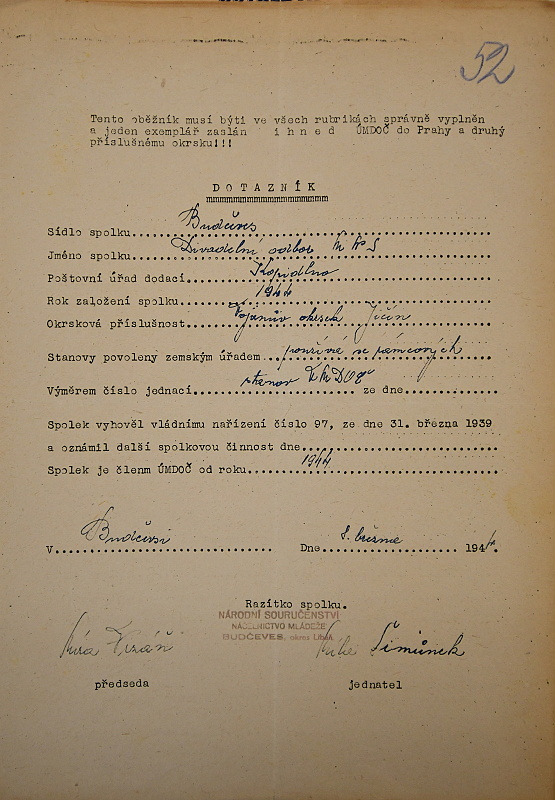 52
Tento oběžník musí býti ve všech rubrikách správně vyplněn
a jeden exemplář zaslán ihned ÚMDOČ do Prahy a druhý
příslušnému okrsku!!!
DOTAZNÍK
Sídlo spolku Budčeves
Jméno spolku Divadelní odbor
Poštovní úřad dodací Kopidlno
Rok založení spolku 1944
Okrsková příslušnost okrsek Jičín
Stanovy povoleny zemským úřadem používá se rámcových
Výměrem číslo jednací stanov ze dne
Spolek vyhověl vládnímu nařízení číslo 97, ze dne 31. března 1939
a oznámil další spolkovou činnost dne
Spolek je členm ÚMDOČ od roku 1944
V Budčevsi Dne 8. března 1944.
Razítko spolku.
NÁRODNÍ SOURUČENSTVÍ
NÁČELNICTVO MLÁDEŽE
BUDČEVES, okres Libáň.
Šimůnek
předseda jednatel